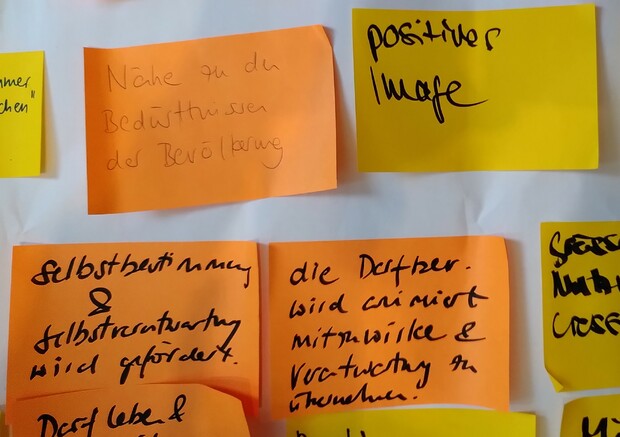 mmer
chen"
Nähe zu den
Bedürfnissen
der Bevölkerung
positives
Image
Selbstbestimmung
&
Selbstverantwortung
wird gefördert.
die Dorfbev.
wird animiert
mitzuwirke &
Verantwortung zu
übernehmen.
Dorfleben &